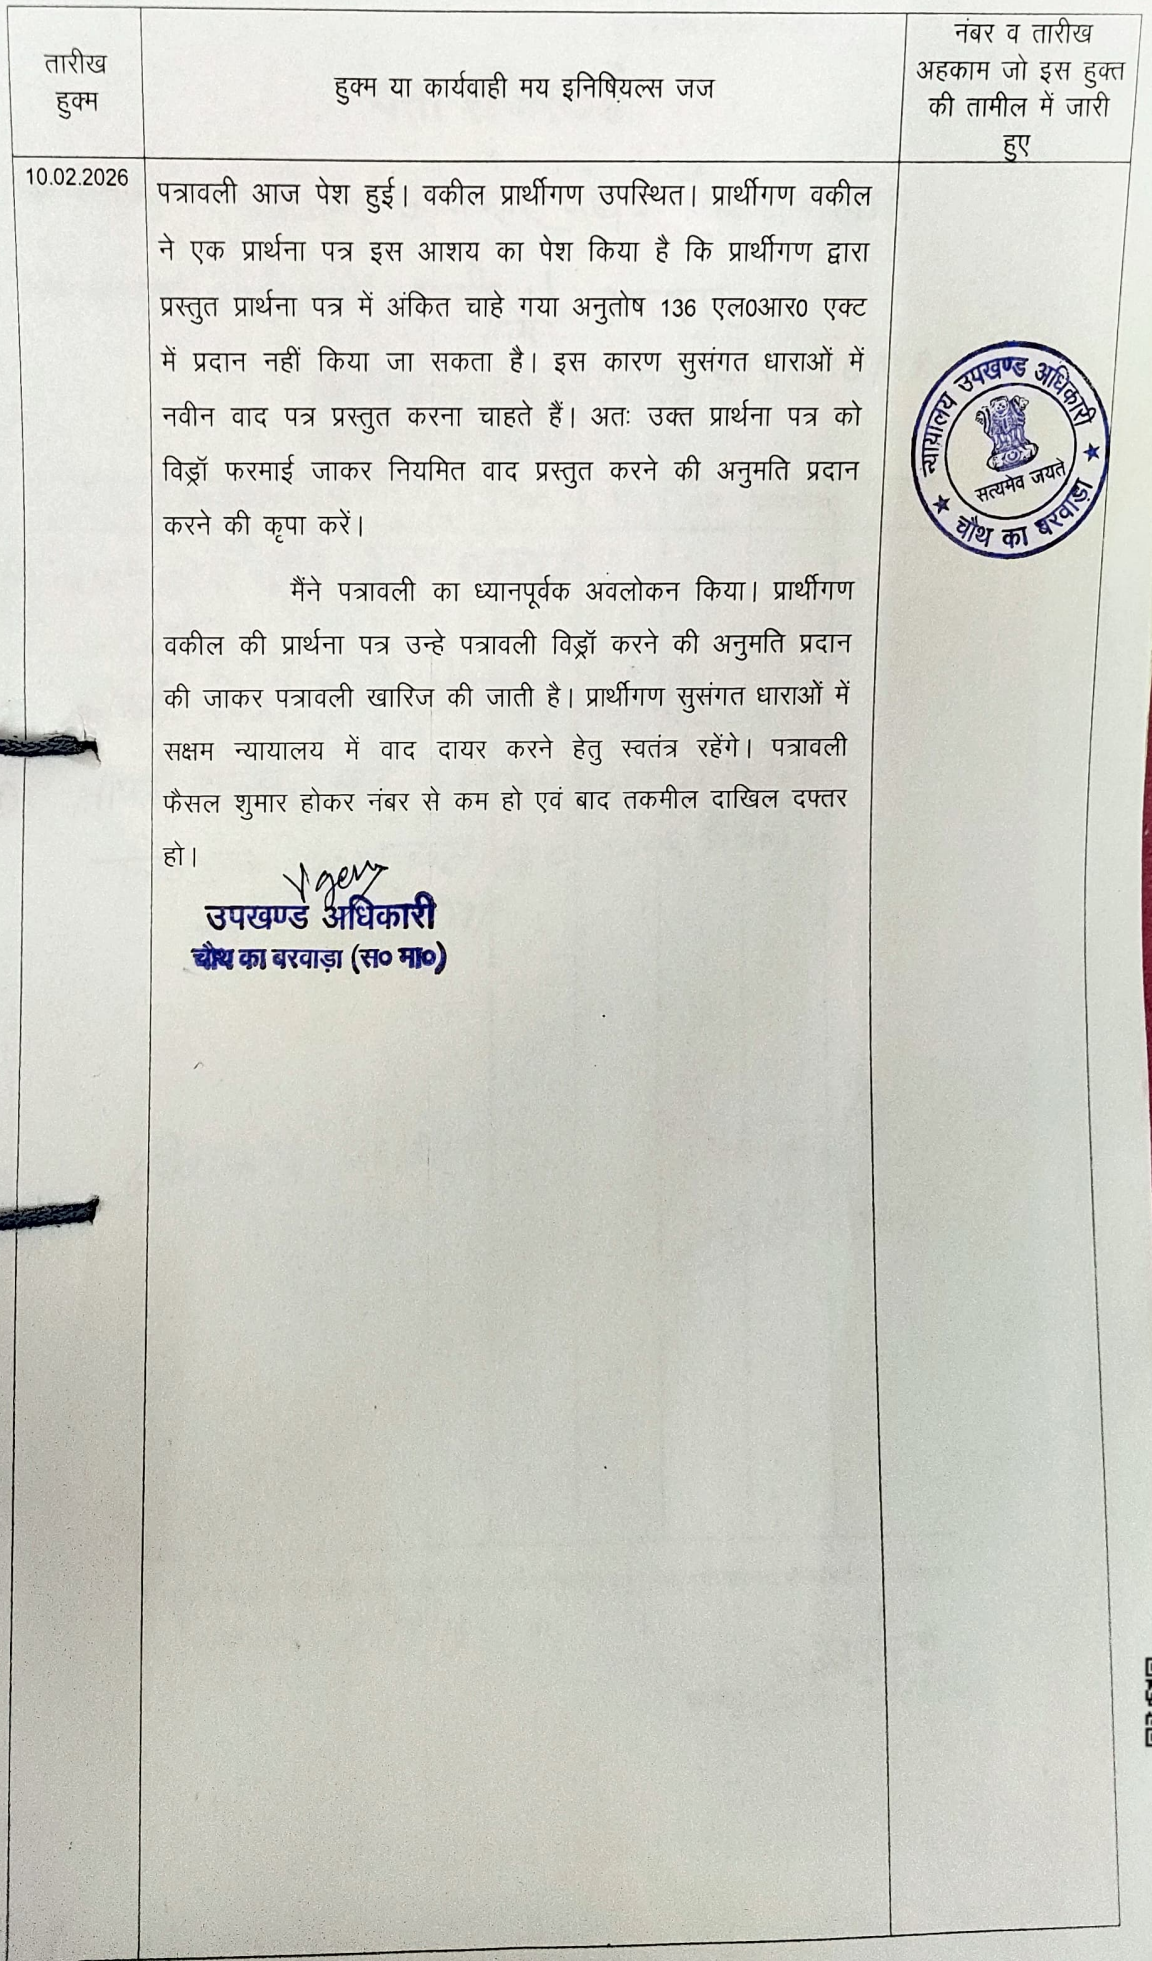 तारीख
हुक्म
हुक्म या कार्यवाही मय इनिषियल्स जज
नंबर व तारीख
अहकाम जो इस हुक्त
की तामील में जारी
हुए
10.02.2026
पत्रावली आज पेश हुई। वकील प्रार्थीगण उपस्थित। प्रार्थीगण वकील
ने एक प्रार्थना पत्र इस आशय का पेश किया है कि प्रार्थीगण द्वारा
प्रस्तुत प्रार्थना पत्र में अंकित चाहे गया अनुतोष 136 एल0आर0 एक्ट
में प्रदान नहीं किया जा सकता है। इस कारण सुसंगत धाराओं में
नवीन वाद पत्र प्रस्तुत करना चाहते हैं। अतः उक्त प्रार्थना पत्र को
विड्रॉ फरमाई जाकर नियमित वाद प्रस्तुत करने की अनुमति प्रदान
करने की कृपा करें।
मैंने पत्रावली का ध्यानपूर्वक अवलोकन किया। प्रार्थीगण
वकील की प्रार्थना पत्र उन्हे पत्रावली विड्रॉ करने की अनुमति प्रदान
की जाकर पत्रावली खारिज की जाती है। प्रार्थीगण सुसंगत धाराओं में
सक्षम न्यायालय में वाद दायर करने हेतु स्वतंत्र रहेंगे। पत्रावली
फैसल शुमार होकर नंबर से कम हो एवं बाद तकमील दाखिल दफ्तर
हो।
उपखण्ड अधिकारी
चौथ का बरवाड़ा (स० मा०)
न्यायालय उपखण्ड अधिकारी
सत्यमेव जयते
चौथ का बरवाड़ा